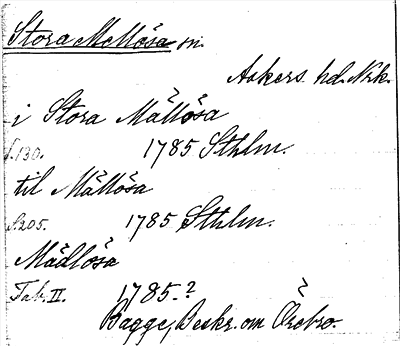 Stora Mellösa sn.
Askers hd. Nrk.
i Stora Mällösa
s. 130. 1785 Sthlm.
til Mällösa
s. 205. 1785 Sthlm.
Mädlösa
Tab. II. 1785.?
Bagge, Beskr. om Örebro.